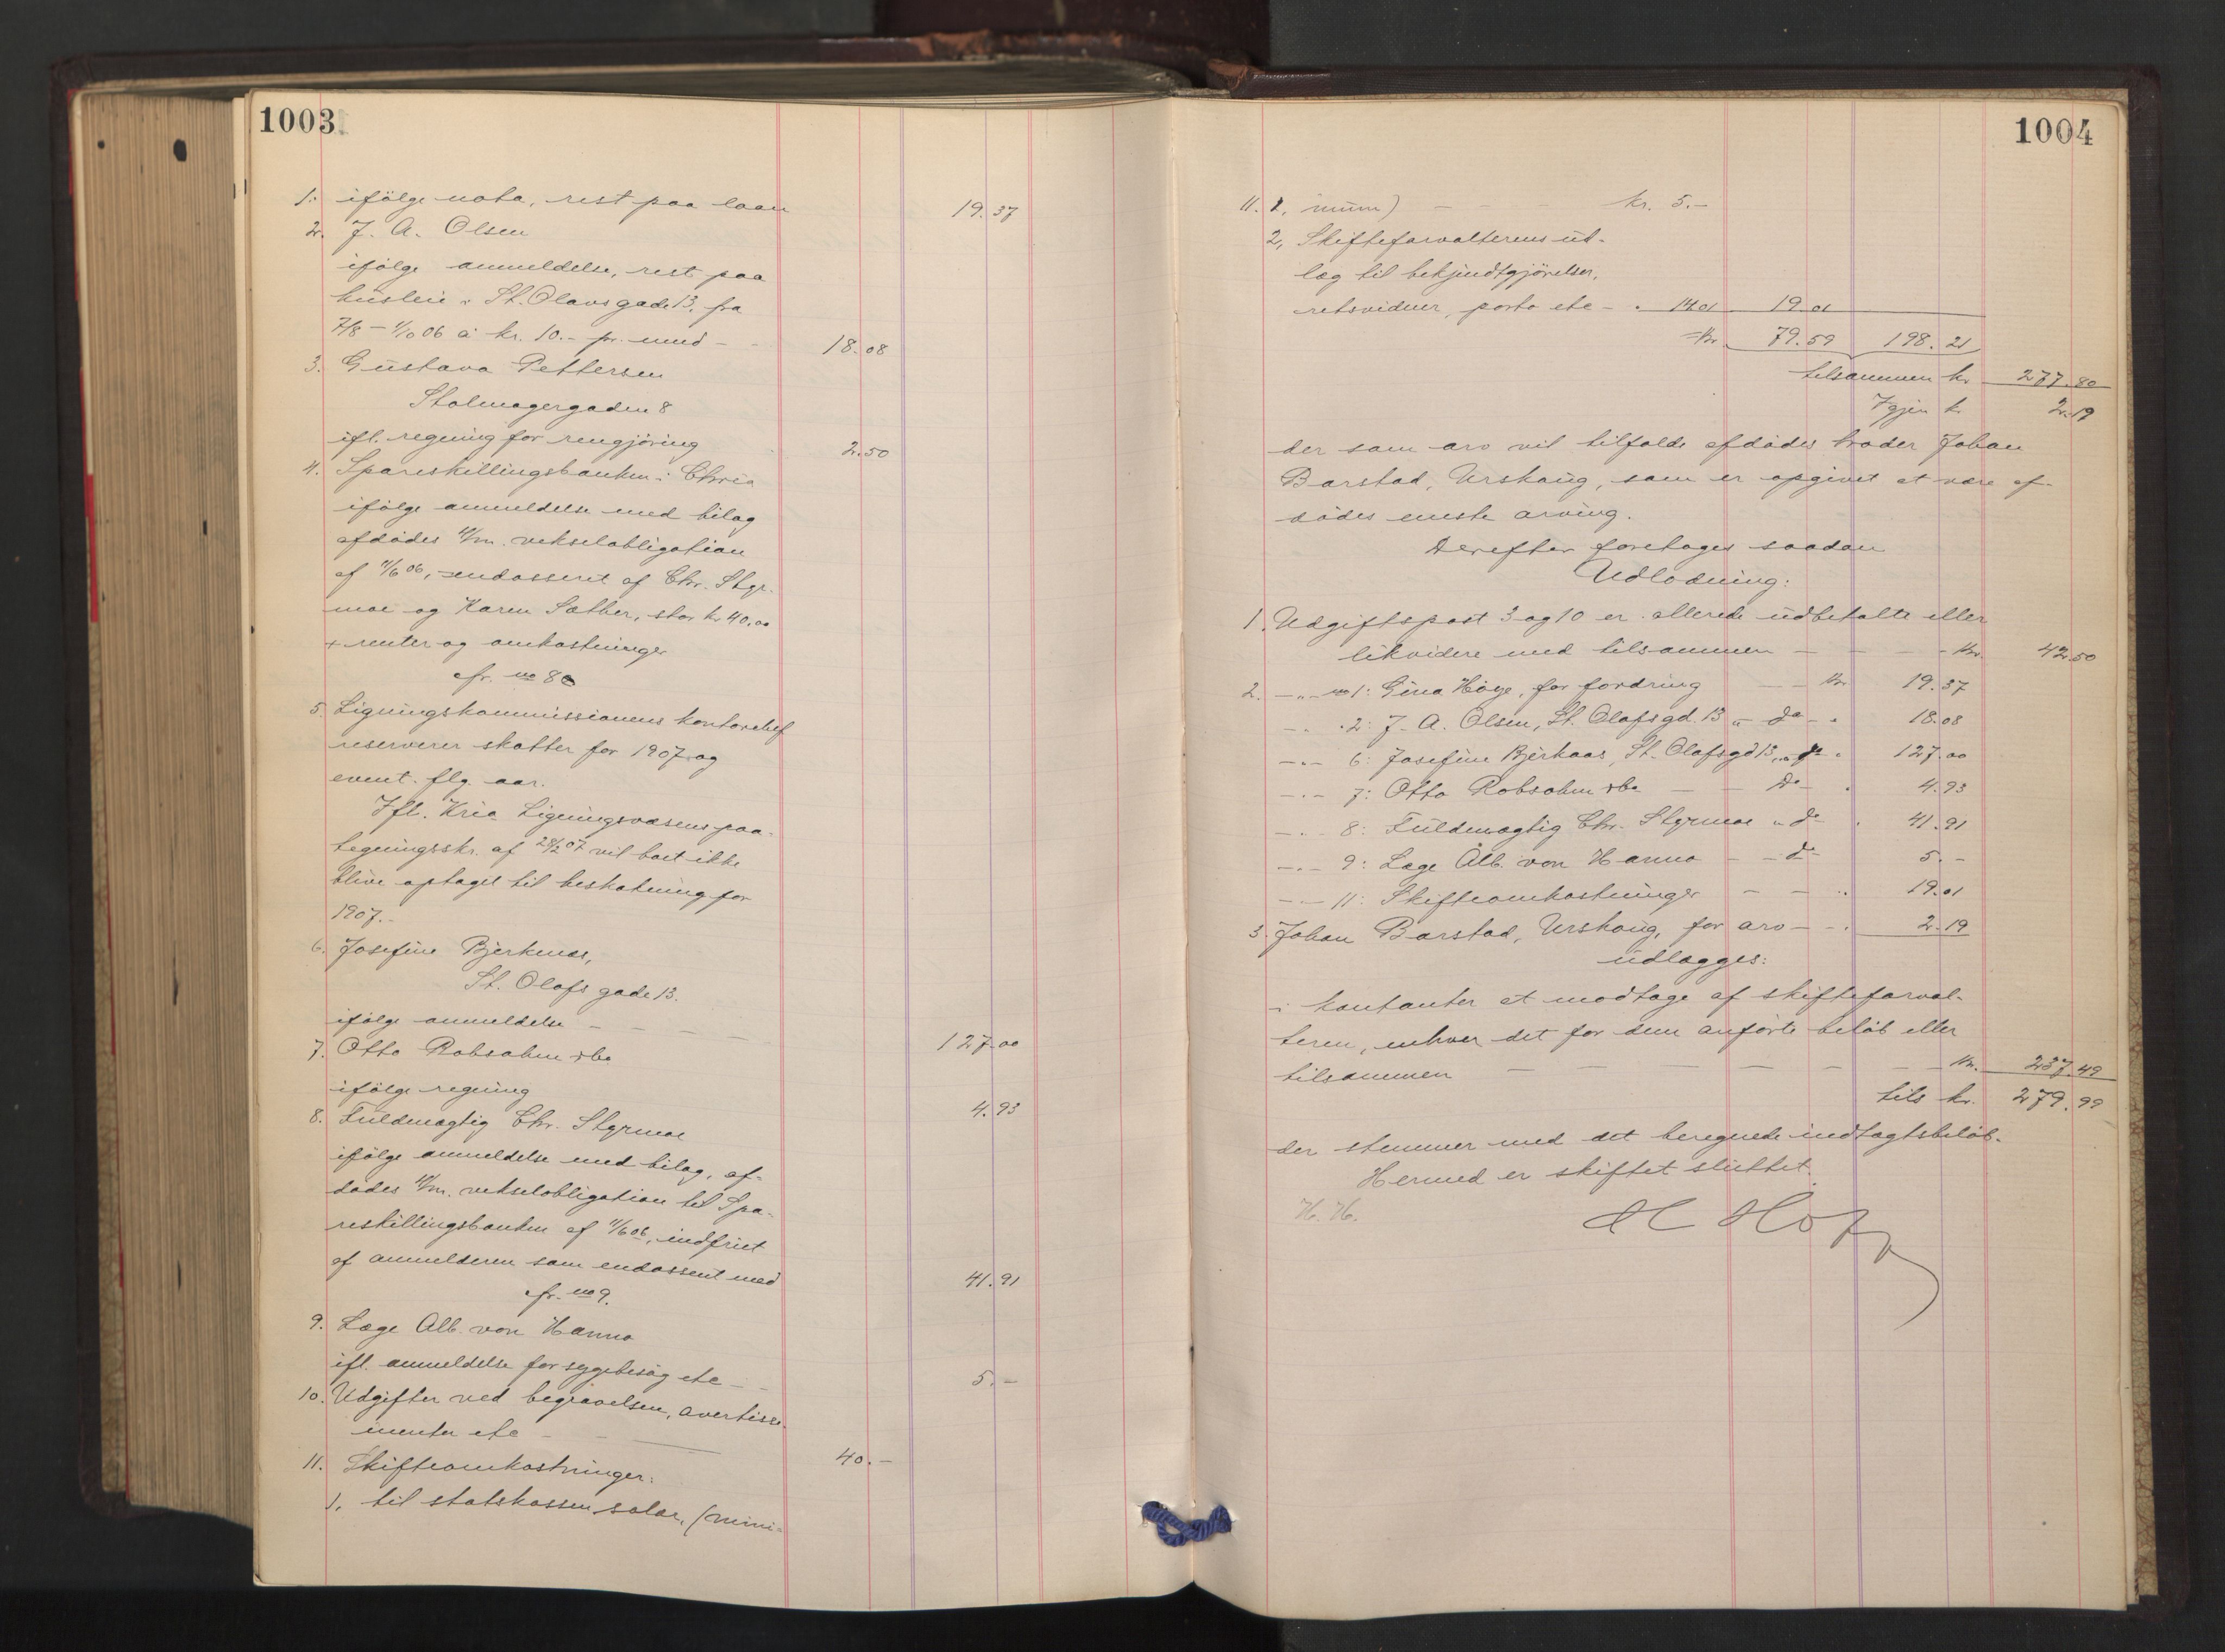 1003
1: ifölge nota, rest paa laan 19.37
2. J. A. Olsen
ifölge anmeldelse, rest paa
husleie i St. Olavsgade 13, fra
7/8 – 1/10 06 a kr. 10.- pr. mnd - - 18.08
3. Gustava Pettersen
Stolmagergaden 8
ifl. regning for rengjöring 2.50
4. Spareskillingsbanken i Chria
ifölge anmeldelse med bilag
afdödes 4/m. vekselobligation
af 11/6 06, endosseret af Chr. Styr-
moe og Karen Sæther, stor kr 40.00
+ renter og omkostninger
cfr. no 8
5. Ligningskommissionens kontorchef
reserverer skatter for 1907 og
event. flg. aar.
Ifl. Kria Ligningsvæsens paa-
tegningsskr. af 28/2 07 vil boet ikke
blive optaget til beskatning for
1907.-
6. Josefine Bjerknæs,
St. Olafs gade 13.
ifölge anmeldelse - - - - 127.00
7. Otto Robsahm & Co
ifölge regning 4.93
8. Fuldmægtig Chr. Styrmoe
ifölge anmeldelse med bilag, af-
dödes 4/m. vekselobligation til Spa-
reskillingsbanken af 11/6 06, indfriet
af anmelderen som endossent med 41.91
cfr. no 9.
9. Læge Alb. von Hanno
ifl. anmeldelse for sygebesög etc - - 5.-
10. Udgifter ved begravelsen, avertisse-
menter etc - - 40.-
11. Skifteomkostninger:
1, til statskassen salær, (mini-
1004
11. 1, mum) - - - kr. 5.-
2, Skifteforvalterens ud-
læg til bekjendtgjörelser,
retsvidner, porto etc - " 14.01 19.01
Kr. 79.59 198.21
tilsammen kr 277.80
Igjen kr. 2.19
der som arv vil tilfalde afdödes broder Johan
Barstad, Urskoug, som er opgivet at være af-
dödes eneste arving.
Derefter foretages saadan
Udlodning:
1. Udgiftspost 3 og 10 er allerede udbetalte eller
likvidere med tilsammen - - - - Kr. 42.50
2. -"- no 1: Gina Höye, for fordring - - Kr. 19.37
-"- 2: J. A. Olsen, St. Olafsgd. 13 " do - " 18.08
-"- 6: Josefine Bjerknæs, St. Olafsgd 13, " do " 127.00
-"- 7: Otto Robsahm & Co - - Do - " 4.93
-"- 8: Fuldmægtig Chr. Styrmoe " do " 41.91
-"- 9: Læge Alb. von Hanno - - do 5.-
-"- 11: Skifteomkostninger - - " 19.01
3. Johan Barstad, Urskoug, for arv - - " 2.19
udlægges:
i kontanter at modtage af skifteforval-
teren, enhver det for dem anförte belöb eller
tilsammen - - - - - - Kr. 237.49
tils kr. 279.99
der stemmer med det beregnede indtægtsbelöb.
Hermed er skiftet sluttet.
H. H.